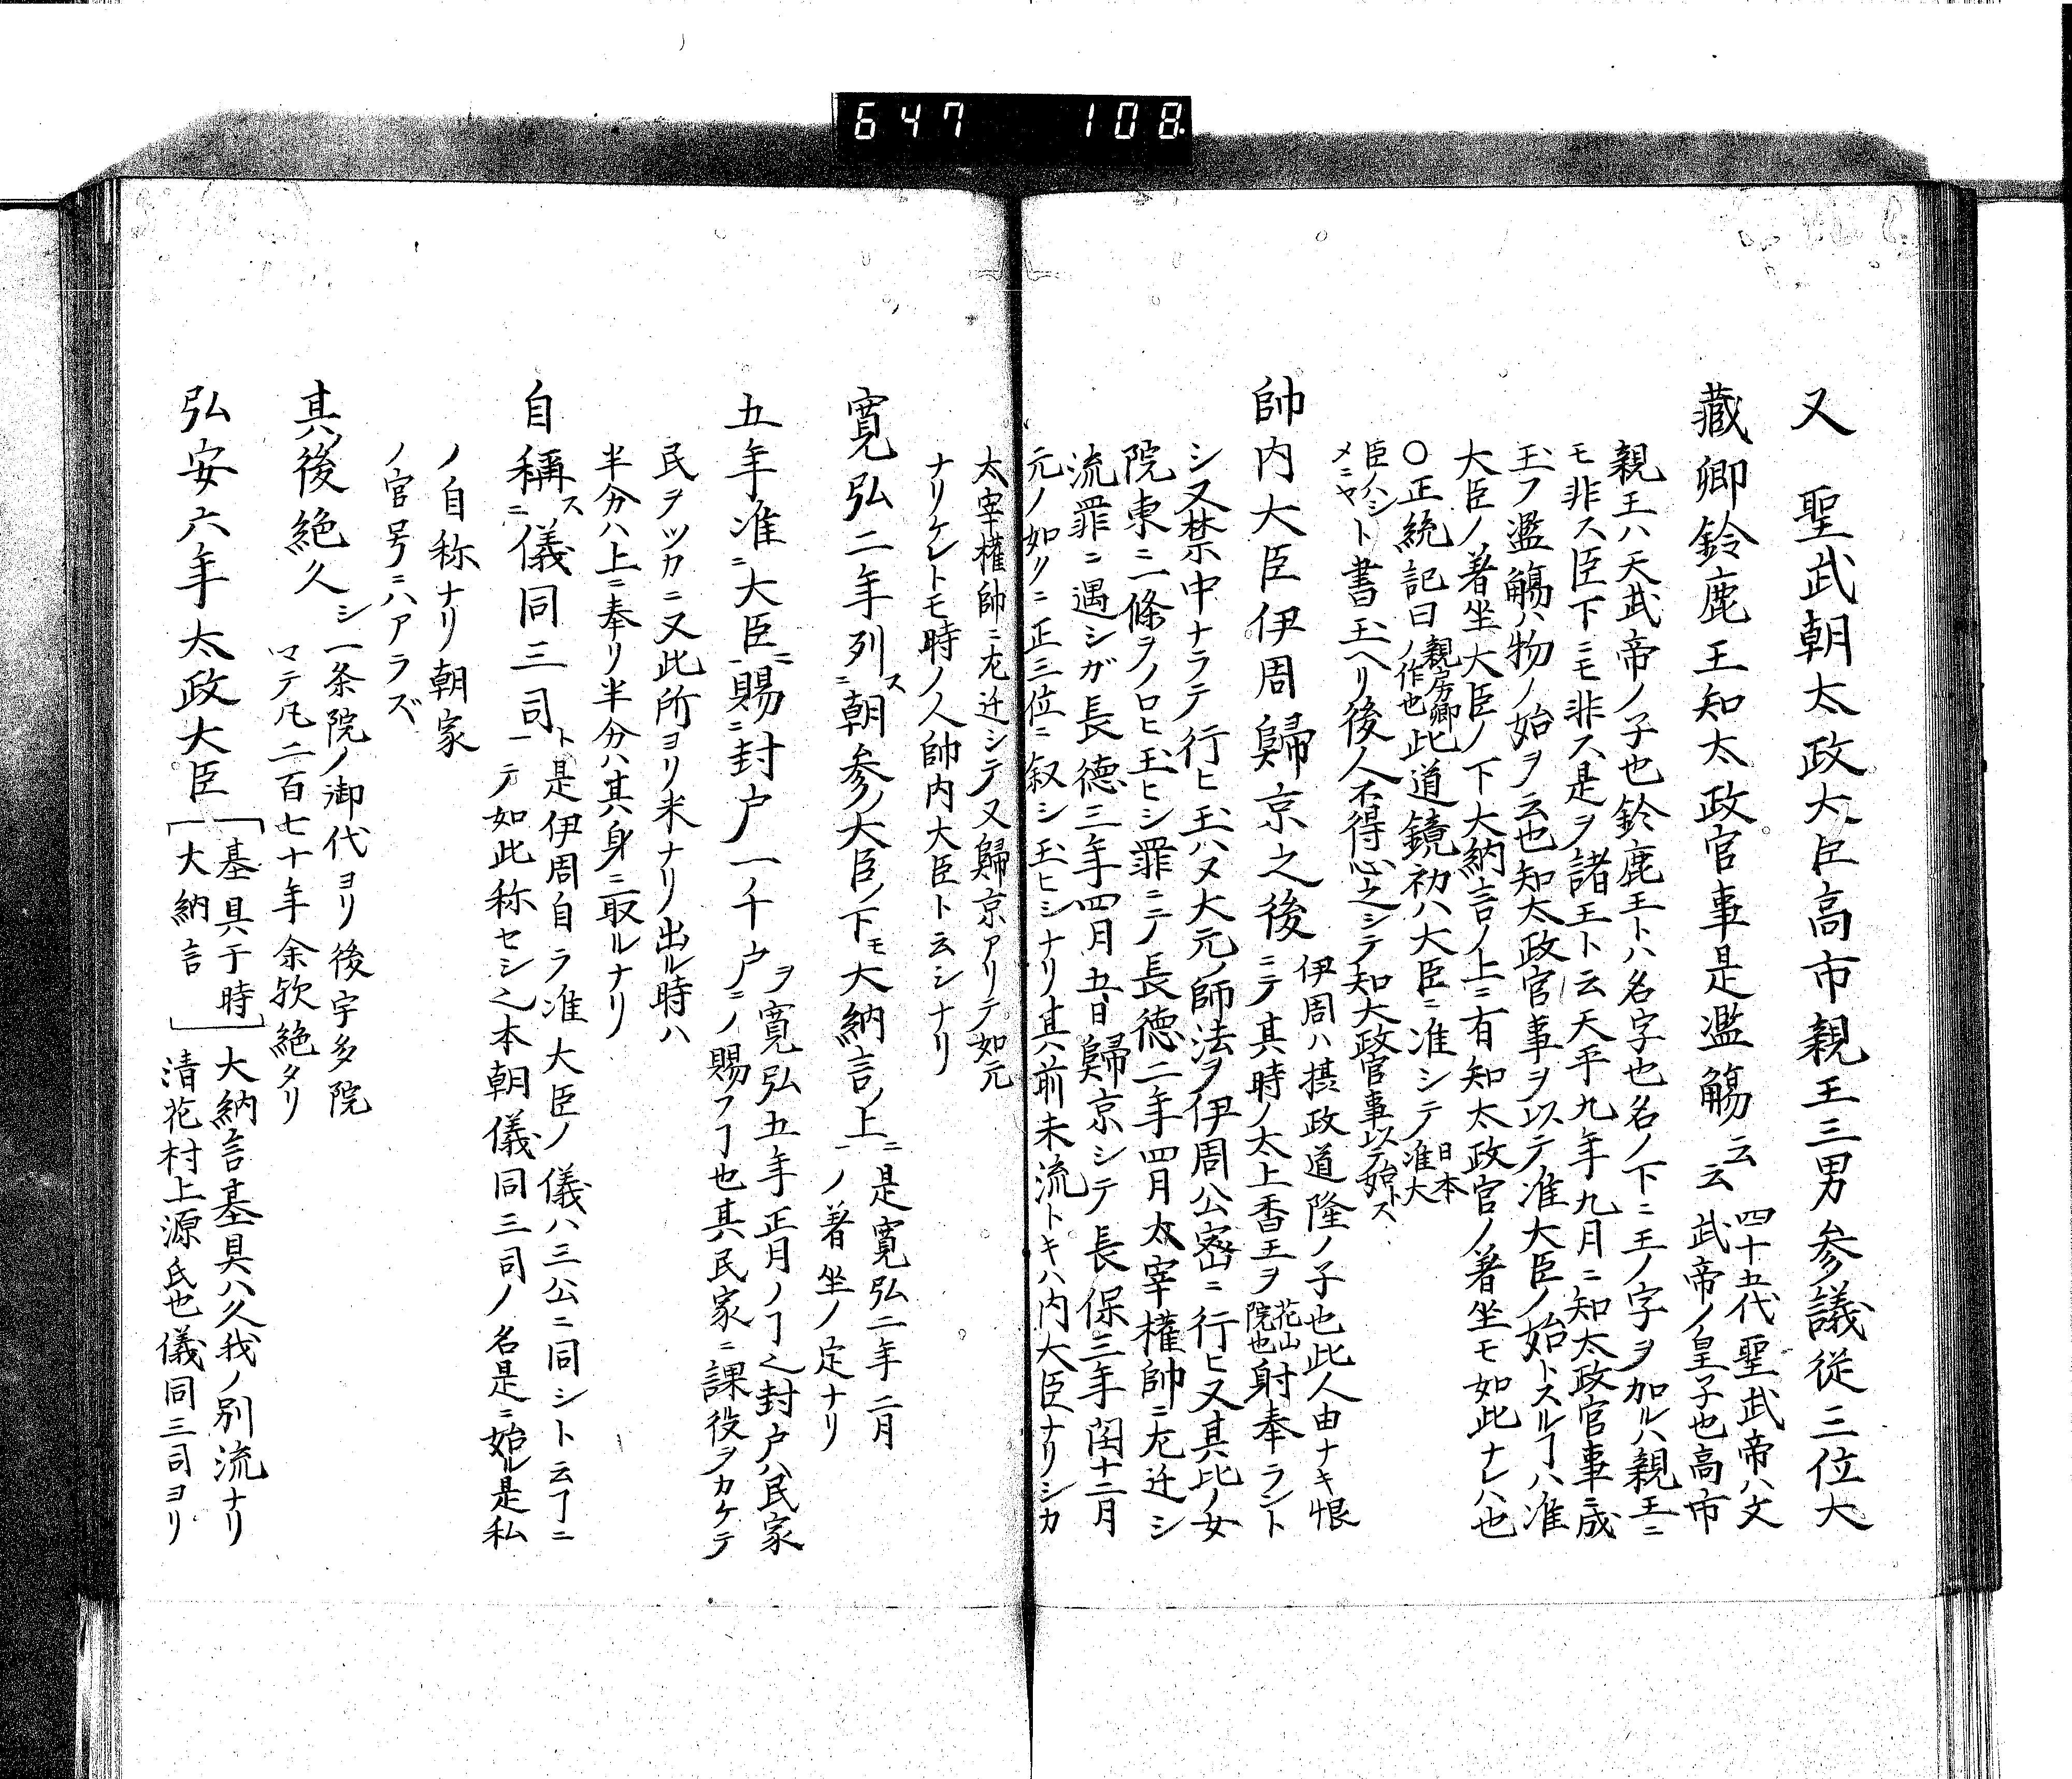 647 108
又聖武朝太政大臣高市親王三男参議従三位大
藏卿鈴鹿王知太政官事是濫觴云云
四十五代聖武帝ハ文
武帝ノ皇子也高市
親王ハ天武帝ノ子也鈴鹿王トハ名字也名ノ下ニ王ノ字ヲ加ルハ親王ニ
モ非ス臣下ニモ非ス是ヲ諸王ト云天平九年九月ニ知太政官事ニ成
玉フ濫觴ハ物ノ始ヲ云也知太政官事ヲ以テ准大臣ノ始トスルヿハ准
大臣ノ着坐大臣ノ下大納言ノ上ニ有知太政官ノ着坐モ如此ナレハ也
〇正統記曰親房卿ノ作也此道鏡初ハ大臣ニ准シテ日本准大
臣ノハシメニヤト書玉ヘリ後人不得心之シテ知大政官事以テ始トス
帥内大臣伊周歸京之後
伊周ハ摂政道隆ノ子也此人由ナキ恨
ニテ其時ノ太上香王ヲ花山院也射奉ラント
シ又禁中ナラテ行ヒ玉ハヌ大元ノ師法ヲ伊周公密ニ行ヒ又其比ノ女
院東三條ヲノロヒ玉ヒシ罪ニテ長徳二年四月太宰權帥ニ左迁シ
流罪ニ遇シガ長德三年四月五日歸京シテ長保三年閏十二月
元ノ如クニ正三位ニ叙シ玉ヒシナリ其前未流トキハ内大臣ナリシカ
太宰權帥ニ左迁シテ又歸京アリテ如元
ナリケレトモ時ノ人帥内大臣ト云シナリ
寛弘二年列ス二朝参ノ大臣ノ下モ大納言ノ上ニ一
是寛弘二年二月
ノ着坐ノ定ナリ
五年准ニ大臣ニ一賜ニ封户一千户ヲ
寛弘五年正月ノヿ之封户ハ民家
ニノ賜フヿ也其民家ニ課役ヲカケテ
民ヲツカニ又此所ヨリ米ナリノ出ル時ハ
半分ハ上ニ奉リ半分ハ其身ニ取ルナリ
自稱ス二儀同三司ト一
是伊周自ラ准大臣ノ儀ハ三公ニ同シト云ヿニ
テ如此称セシ之本朝儀同三司ノ名是ニ始ル是私
ノ自称ナリ朝家
ノ官号ニハアラズ
其後絶久シ
一条院ノ御代ヨリ後宇多院
マテ凡二百七十年余欤絶タリ
弘安六年太政大臣
基具于時
大納言
大納言基具ハ久我ノ別流ナリ
清花村上源氏也儀同三司ヨリ